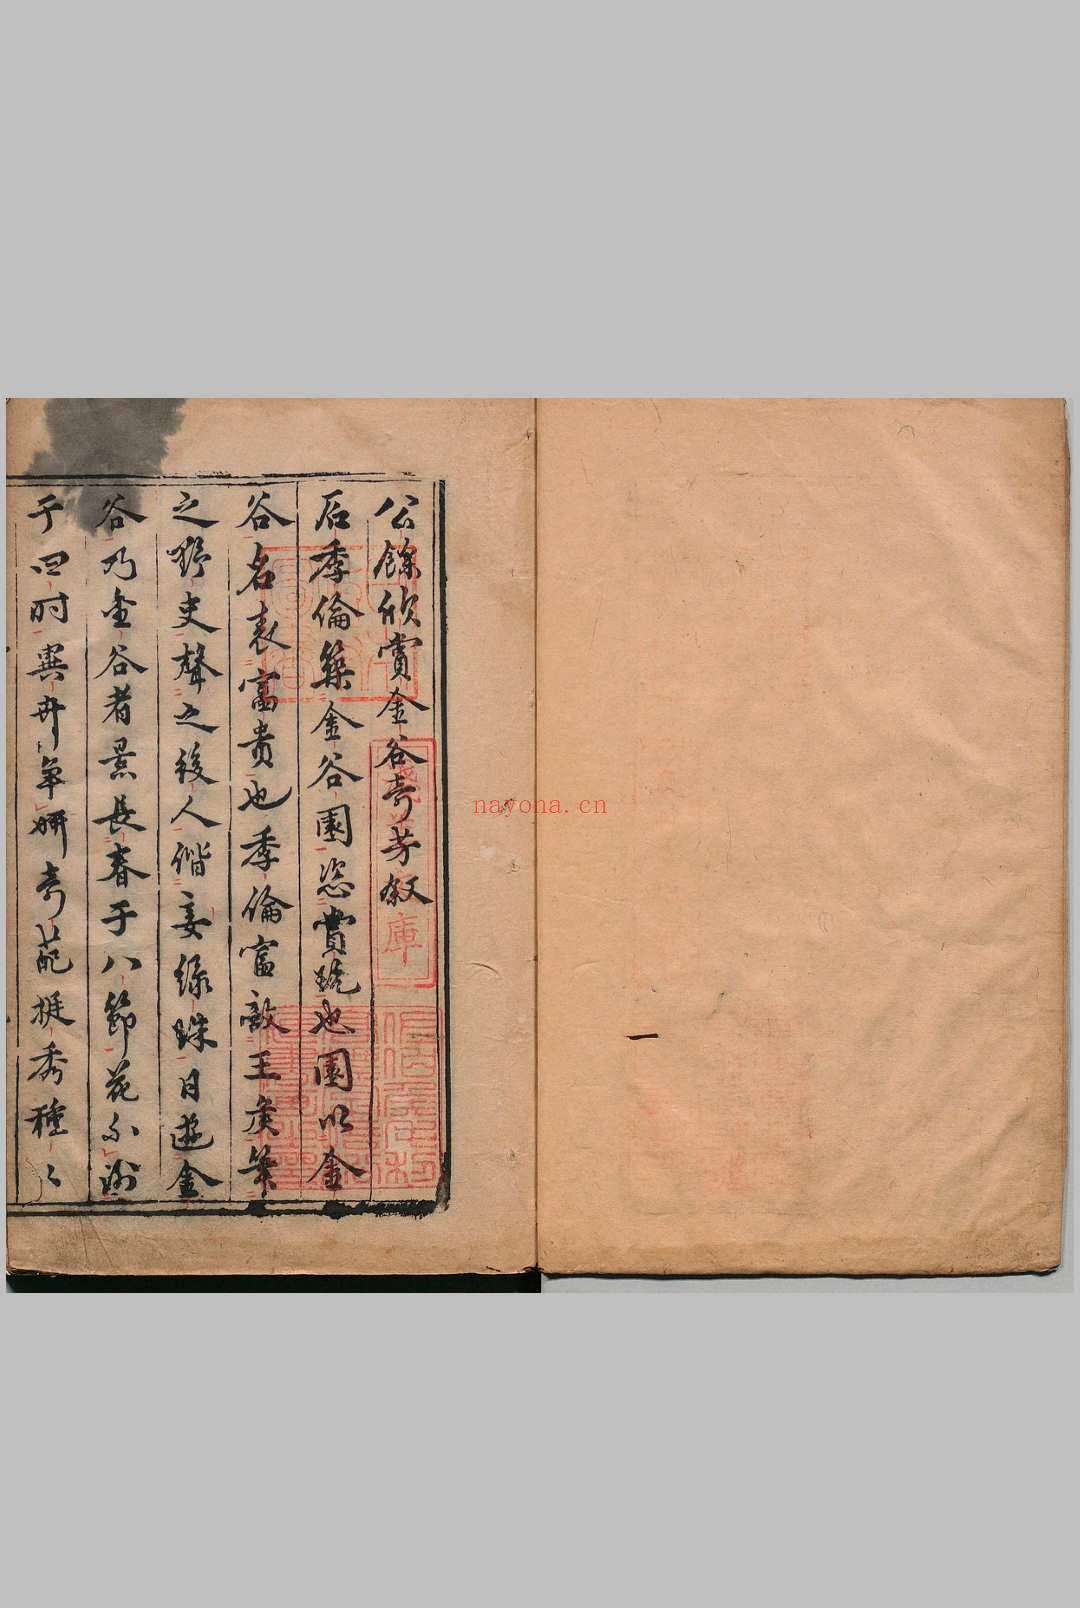 公餘欣賞金谷奇芳叙
石季倫築金谷園恣賞玩也園以金
谷名表富貴也季倫富敵王侯築
之野史聲之後人偕妾綠珠日遊金
谷乃金谷者景長春于八節花不謝
于四时異卉爭妍奇葩挺秀種〻
庫
nayona.cn